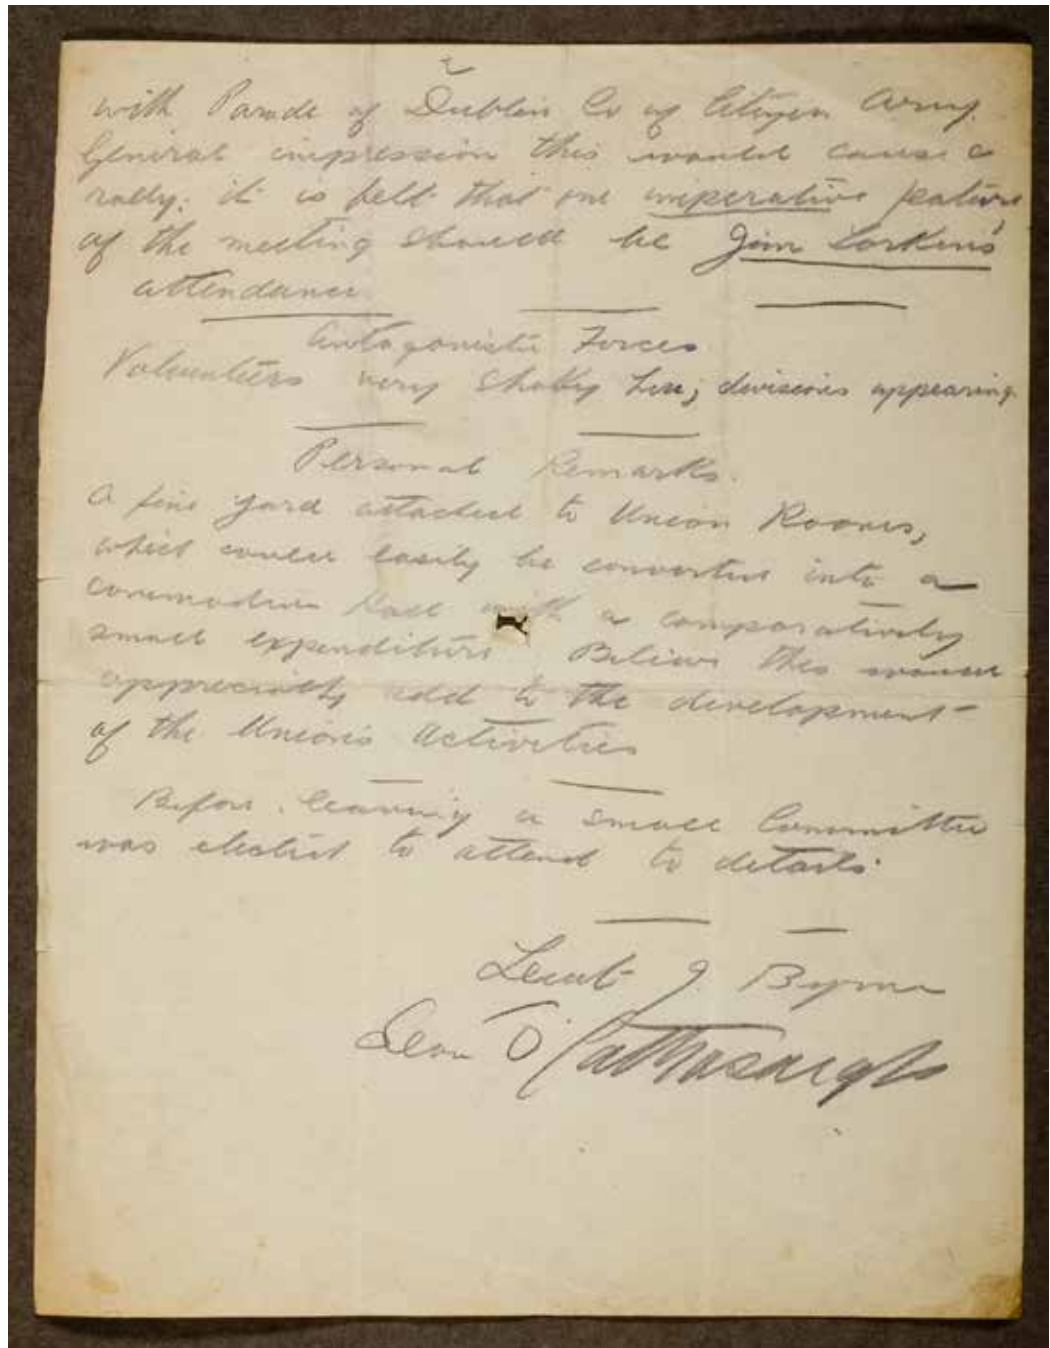 2
with Parade of Dublin Co of Citizen Army.
General impression this would cause a
rally; it is felt that one imperative feature
of the meeting should be Jim Larkin's
attendance
Antagonistic Forces
Volunteers very shaky here; divisions appearing.
Personal Remarks.
A fine yard attached to Union Rooms,
which could easily be converted into a
commodious Hall with a comparatively
small expenditure Believe this would
appreciably add to the development
of the Union's Activities
Before leaving a small Committee
was elected to attend to details.
Lieut J Byrne
Sean O'Cathasaigh